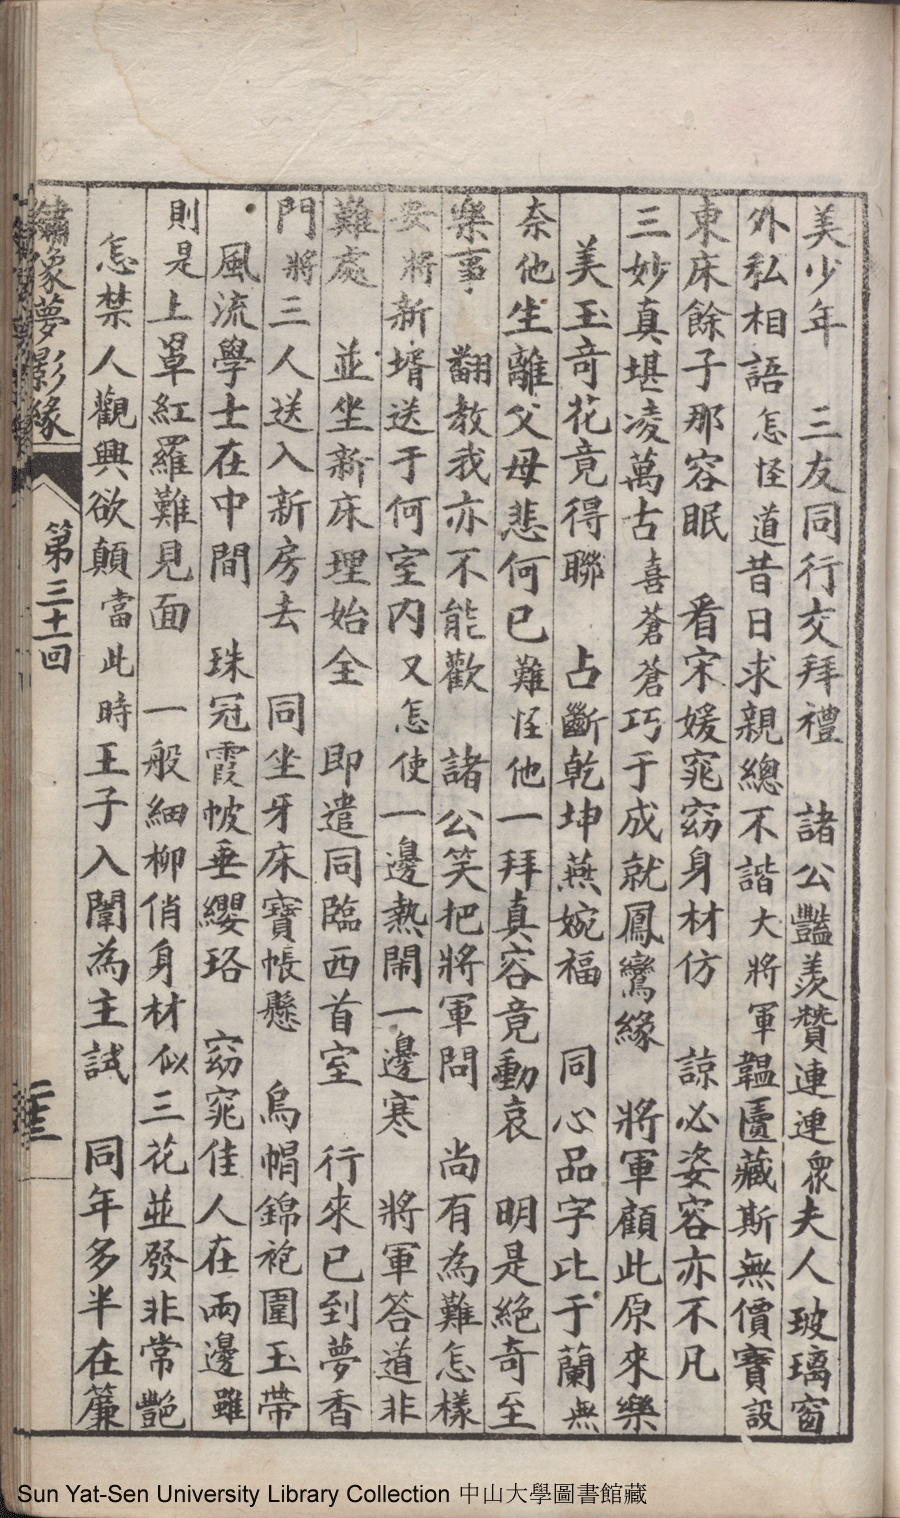 美少年　三友同行交拜禮　諸公豔羨贊連連衆夫人玻璃窗
外私相語怎怪道昔日求親總不諧大將軍韞匵藏斯無價寶設
東床餘子那容眠　看宋媛窕窈身材仿　諒必姿容亦不凡
三妙真堪凌萬古喜蒼蒼巧于成就鳳鸞緣　將軍顧此原來樂
美玉奇花竟得聯　占斷乾坤燕婉福　同心品字比于蘭無
奈他生離父母悲何已難怪他一拜真容竟動哀　明是絕奇至
樂事　翻教我亦不能歡　諸公笑把將軍問　尚有為難怎樣
安將新壻送于何室內又怎使一邊熱鬧一邊寒　將軍答道非
難處　並坐新床理始全　即遣同臨西首室　行來已到夢香
門將三人送入新房去　同坐牙床寶帳懸　烏帽錦袍圍玉帶
風流學士在中間　珠冠霞帔垂纓珞　窈窕佳人在兩邊雖
則是上罩紅羅難見面　一般細柳俏身材似三花並發非常艷
怎禁人觀興欲顛當此時王子入闈為主試　同年多半在簾
繡像夢影緣
第三十一回